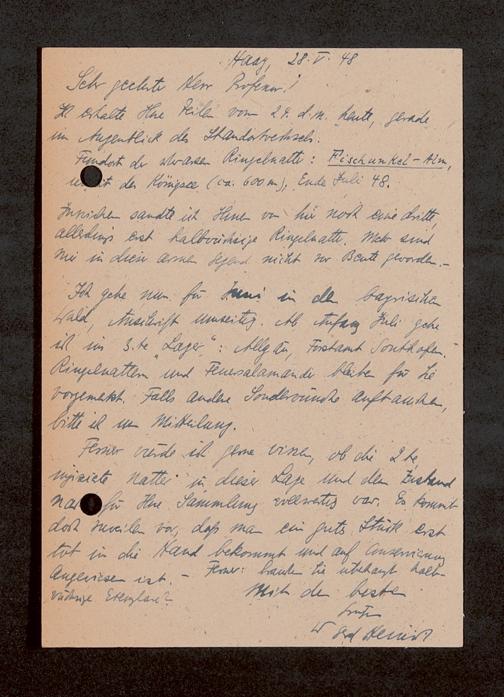 Haag, 28. V. 48
Sehr geehrter Herr Professor!
Ich erhalte Ihre Zeilen vom 24. d. M. heute, gerade
im Augenblick des Standortwechsels.
Fundort der schwarzen Ringelnatter: Fischunkel-Alm,
des Königsee (ca. 600 m), Ende Juli 48.
Inzwischen sandte ich Ihnen von hier noch eine dritte,
allerdings erst halbwüchsige Ringelnatter. Mehr sind
mir in dieser armen Gegend nicht zur Beute geworden. -
Ich gehe nun für Juni in den bayrischen
Wald, Anschrift umseitig. Ab Anfang Juli gehe
ich ins 3. te "Lager": Allgäu, Forstamt Sonthofen. -
Ringelnattern und Feuersalamander bleiben für Sie
vorgemerkt. Falls andere Sonderwünsche auftauchen,
bitte ich um Mitteilung.
Ferner würde ich gerne wissen, ob die 2. te
injizierte Natter in dieser Lage und dem Zustand
für Ihre Sammlung vollwertig war. Es kommt
doch zuweilen vor, daß man ein gutes Stück erst
tot in die Hand bekommt und auf Conservierung
angewiesen ist. - Ferner: brauchen Sie überhaupt halb-
wüchsige Exemplare?
Mit den besten
Grüßen